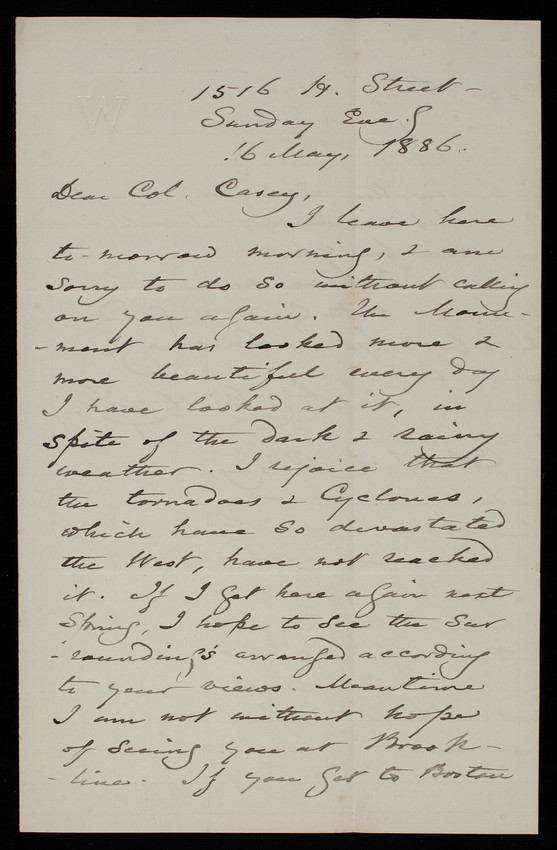 W
1516 H. Street-
Sunday Eve.g
16 May, 1886.
Dear Col. Casey,
I leave here
to-morrow morning, & am
sorry to do so without calling
on you again. The Monu-
-ment has looked more &
more beautiful every day
I have looked at it, in
spite of the dark & rainy
weather. I rejoice that
the tornadoes & Cyclones,
which have so devastated
the West, have not reached
it. If I get here again next
Spring, I hope to see the Sur
-roundings arranged according
to your views. Meantime
I am not without hope
of seeing you at Brook-
-line. If you get to Boston